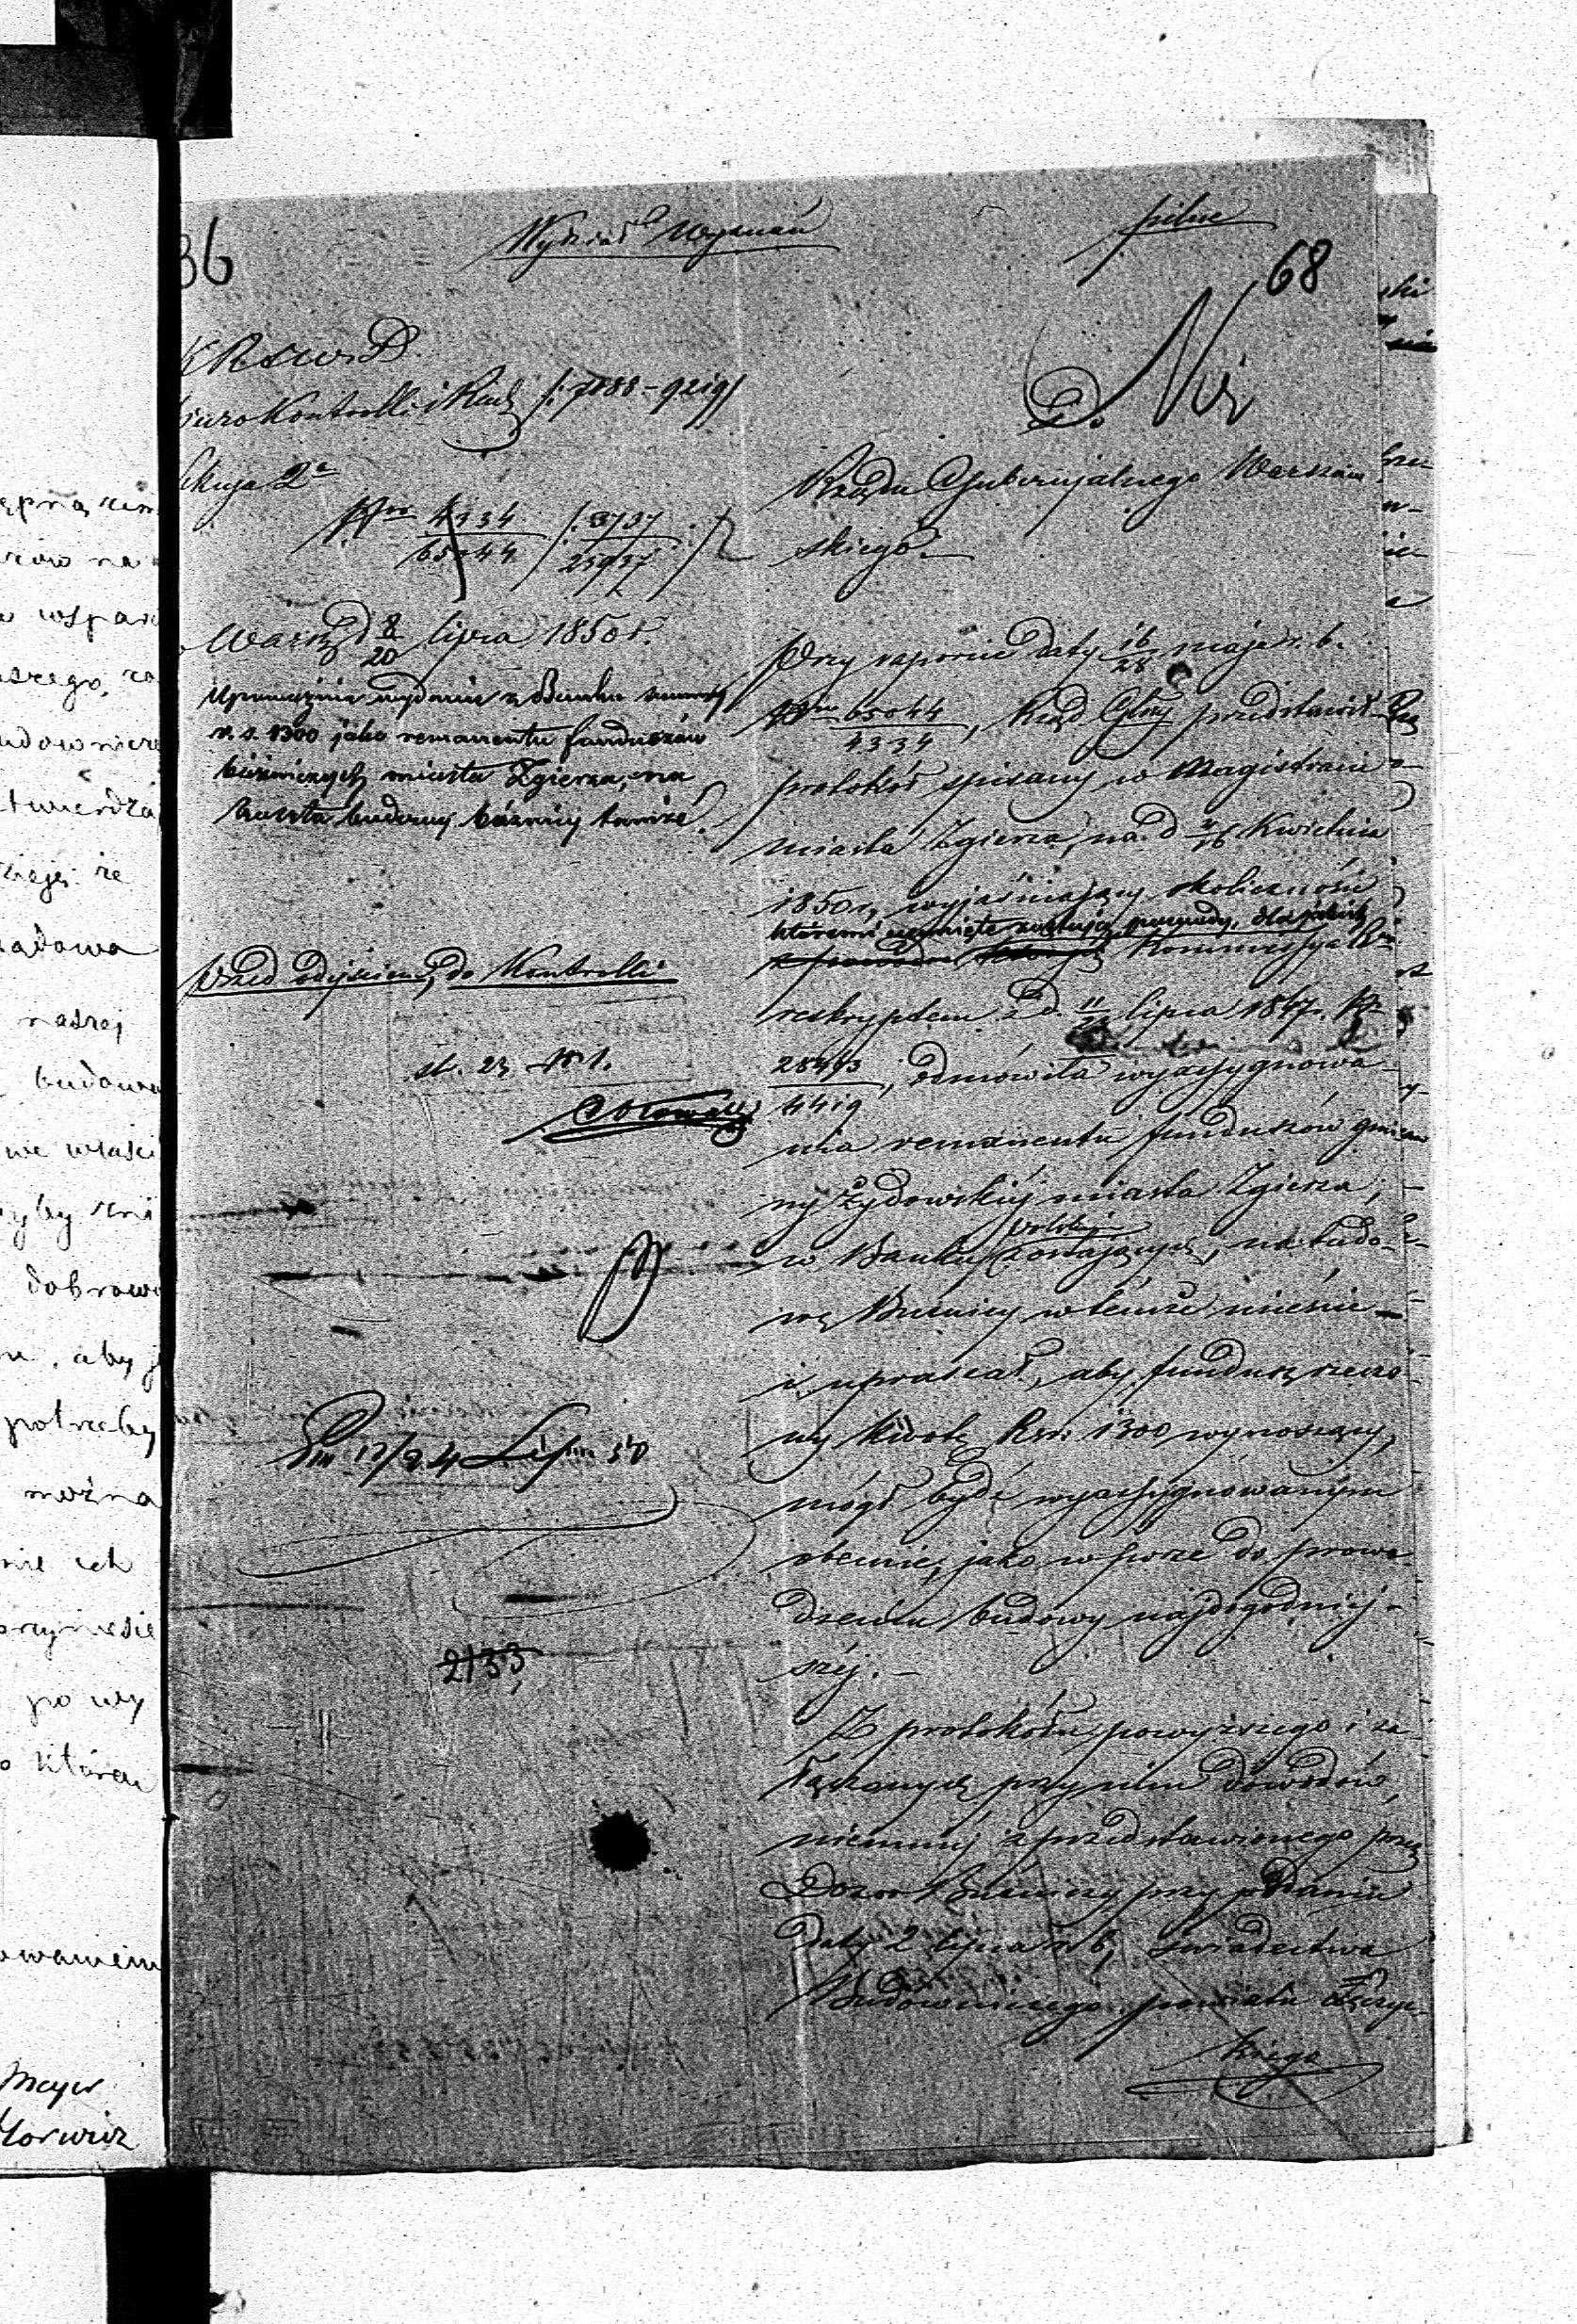 Wydział Wyznań
pilne
36
68
K R S W i D.
Biuro Kontrolli i Rach
Sekcja 2a
Nro 4334 / 65044 /: 3737 / 23937 :/
Warsz. d 8/20 lipca 1850 r.
Upoważnia wydanie z Banku summy
r. s. 1300 jako remanentu funduszów
bóżniczych miasta Zgierza, na
koszta budowy bóżnicy tamże.
Przed odejściem do Kontrolli
st. 23 N 1.
12/24 Lipca 50
2133
Do
Rządu Gubernijalnego Warszaw
skiego.
Przy raporcie daty 16/28 maja r. b.
Nro 65044 / 4334, Rząd Glny przedstawił
protokół spisany w Magistracie
miasta Zgierza, na d 4/16 Kwietnia
1850 r, wyjaśniający okoliczności
któremi usunięte zostają powody, dla jakich
Kommissya Rzą
reskryptem z d. 11/23 lipca 1847 r. Nr
28493 / 4419, odmówiła wyassygnowa-
nia remanentu funduszów gmin
ny Żydowskiéj miasta Zgierza,
w Banku polskim zostających, na budo-
wę Bużnicy w témże mieście
i upraszał, aby fundusz rzeczo-
ny kwotę Rsr. 1300 wynoszący,
mógł bydź wyassygnowanym
obecnie, jako w porze do prowa-
dzenia budowy najdogodniej-
széj.
Z protokółu powyższego i za
łączonych przy nim dowodów,
niemniej z przedstawionego przez
Dozór Bużniczy przy podaniu
daty 2 lipca r b, świadectwa
Budowniczego powiatu Łęczyc-
kiego
ępną
rów na
wspar
aszego, za
budownicze
twierdza
ze
naszej
budowa
we właści
dobrowo
aby
potrzeby
można
nie ich
przyniesie
po wy
o którem
owaniem
Meyer
Horwicz